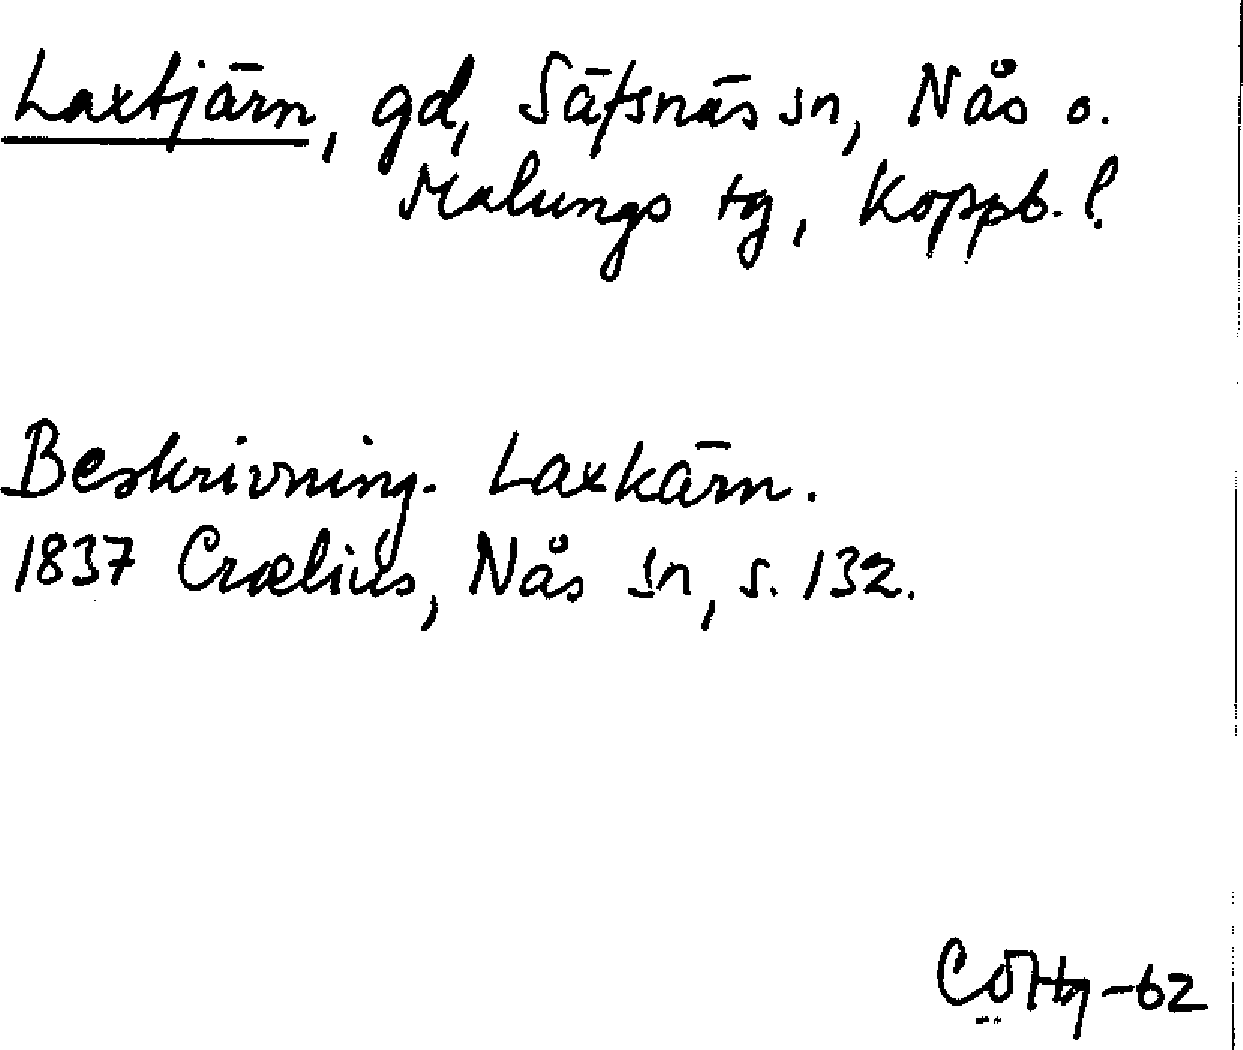 Laxtjärn, gd, Säfsnäs sn, Nås o.
Malungs tg, Koppb. l.
Beskrivning. Laxkärn.
1837 Crælius, Nås sn, s. 132.
-62